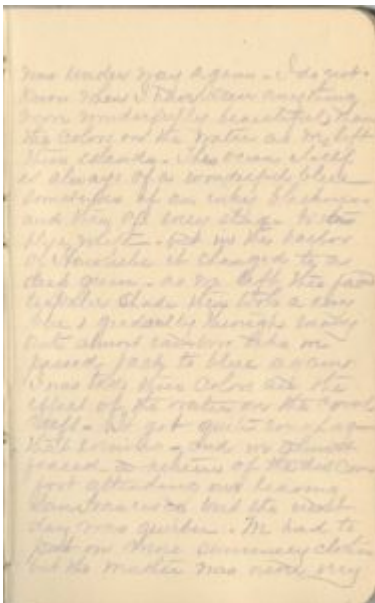 was under way again - I do not
know when I have seen anything
more wonderfully beautiful than
the colors on the water as we left
these islands. The ocean itself
is always of a wonderful blue
sometimes of an inky blackness
and then of every stage to
. But in the harbor
of Honolulu it changed to a
dark green - as we left this
shade then took a
hue & gradually through
out almost rainbow like we
passed back to blue again.
I was told these colors are the
effect of the water on the coral
reef. We got quite rough again
that evening - and we almost
feared a return of the discom
fort attending our leaving
San Francisco but the next
day was quieter. We had to
put on more summery clothes
but the weather was never very